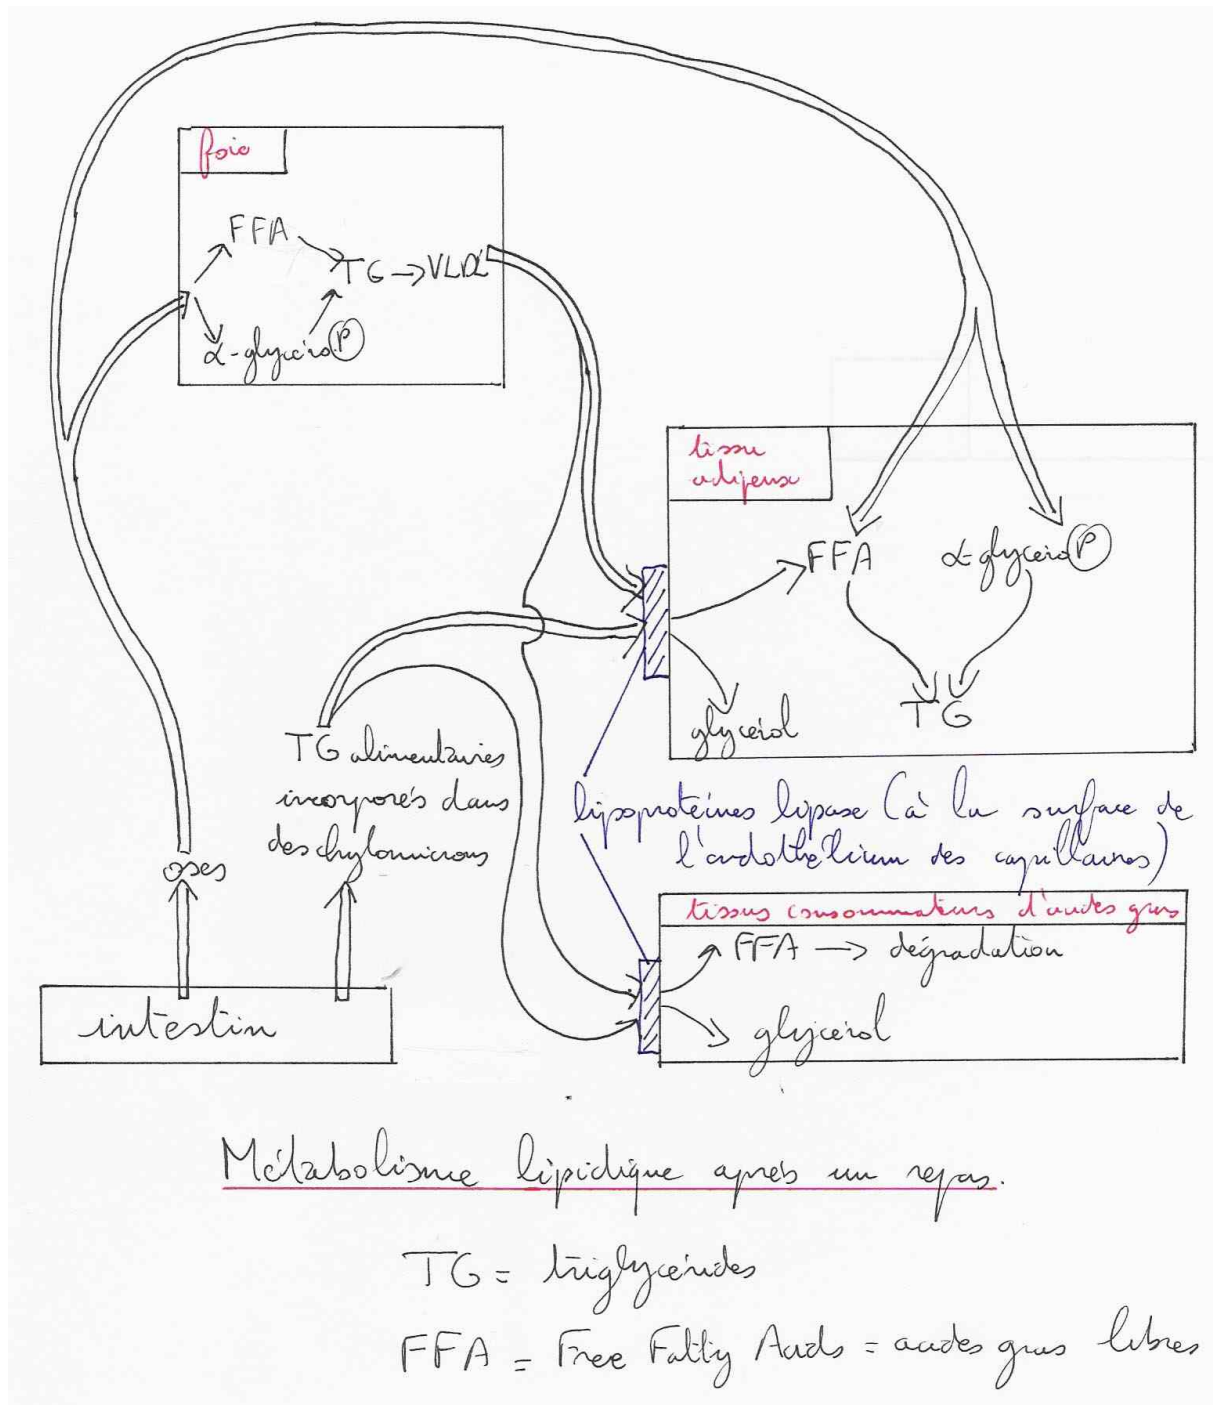 foie
FFA
TG → VLDL
α-glycéro P
tissu
adipeux
FFA
α-glycéro P
TG
glycérol
TG alimentaires
incorporés dans
des chylomicrons
oses
lipoprotéines lipase (à la surface de
l'endothélium des capillaires)
tissus consommateurs d'acides gras
FFA → dégradation
glycérol
intestin
Métabolisme lipidique après un repas.
TG = triglycérides
FFA = Free Fatty Acids = acides gras libres